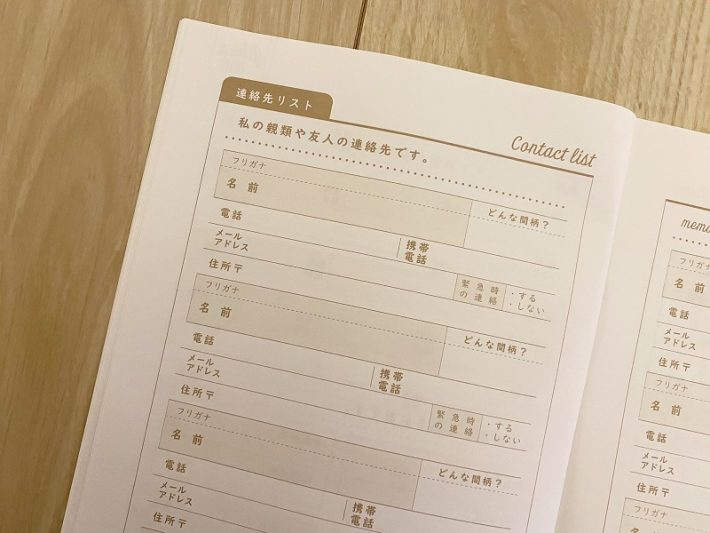 連絡先リスト
Contact list
私の親類や友人の連絡先です。
フリガナ
名前
どんな間柄?
電話
携帯
電話
メール
アドレス
住所〒
緊急時
の連絡
・する
・しない
フリガナ
名前
どんな間柄?
電話
携帯
電話
メール
アドレス
住所〒
緊急時
の連絡
・する
・しない
フリガナ
名前
どんな間柄?
電話
携帯
電話
メール
アドレス
住所〒
memo
フリガナ
名前
電話
メール
アドレス
住所〒
フリガナ
名前
電話
メール
アドレス
住所〒
フリガナ
名前